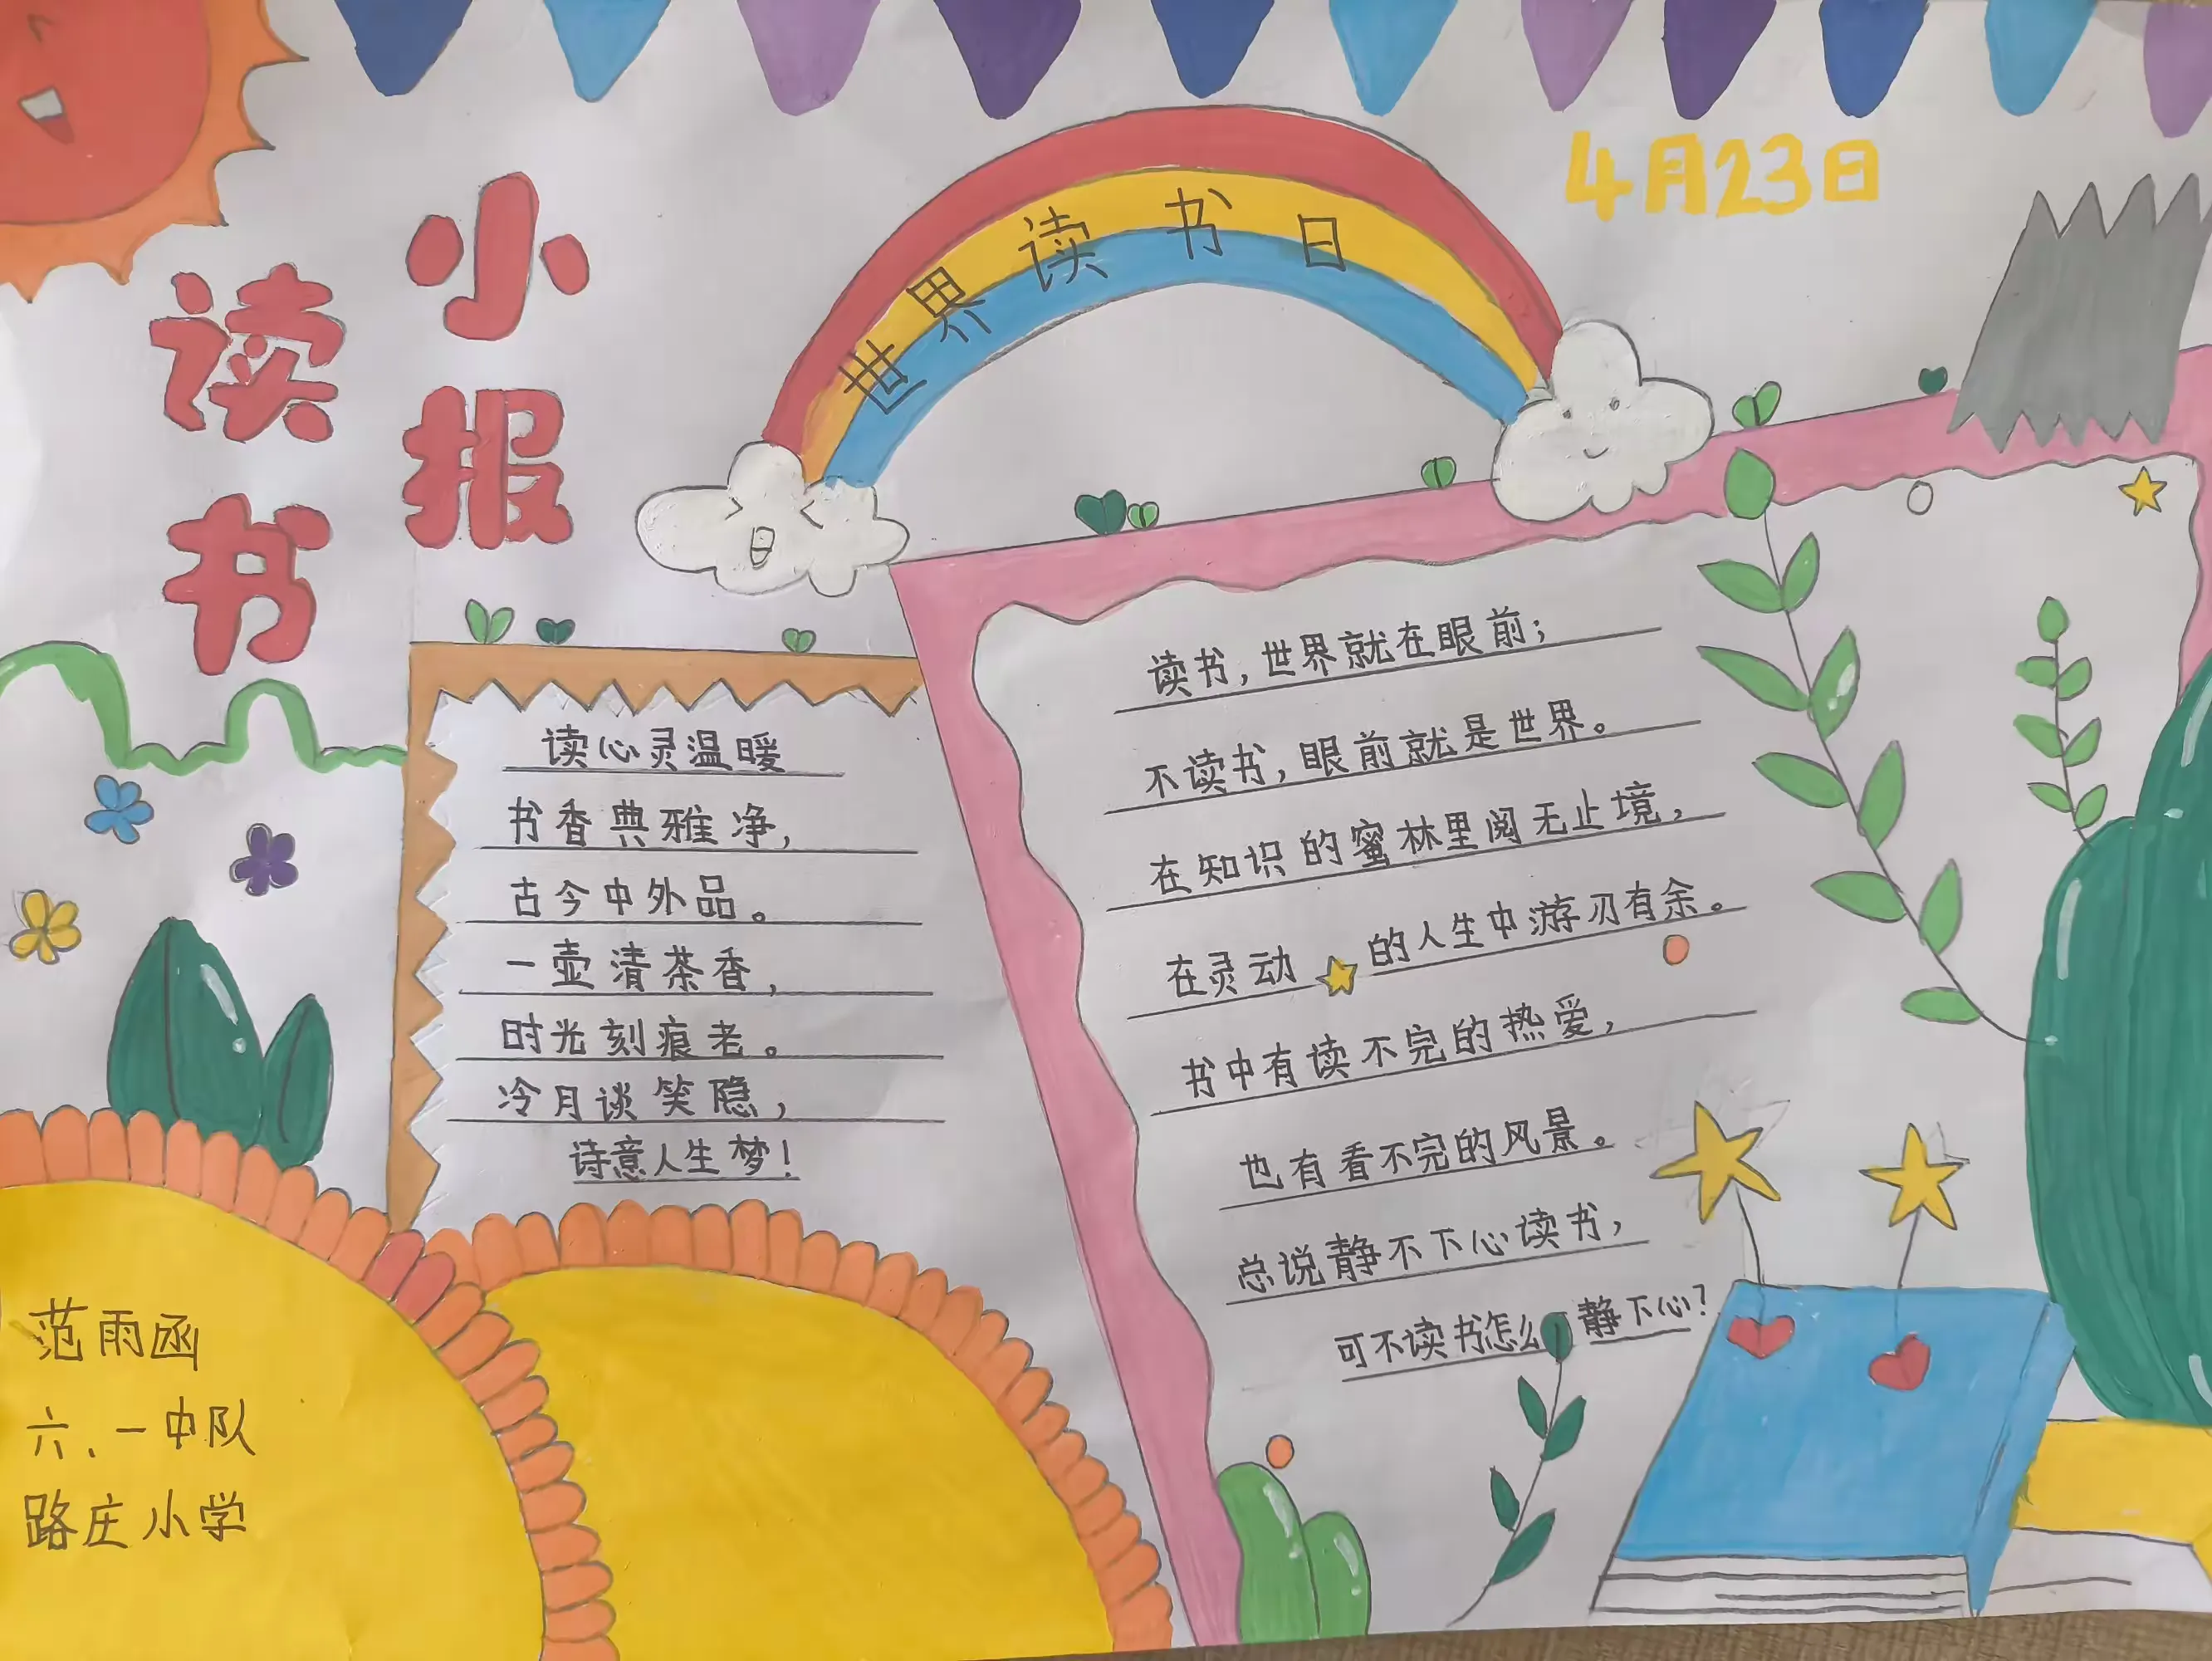 4月23日
世界读书日
读书
小报
读心灵温暖
书香典雅净，
古今中外品。
一壶清茶香，
时光刻痕老。
冷月谈笑隐，
诗意人生梦！
读书，世界就在眼前；
不读书，眼前就是世界。
在知识的蜜林里阅无止境，
在灵动的人生中游刃有余。
书中有读不完的热爱，
也有看不完的风景。
总说静不下心读书，
可不读书怎么静下心？
范雨函
六、一中队
路庄小学